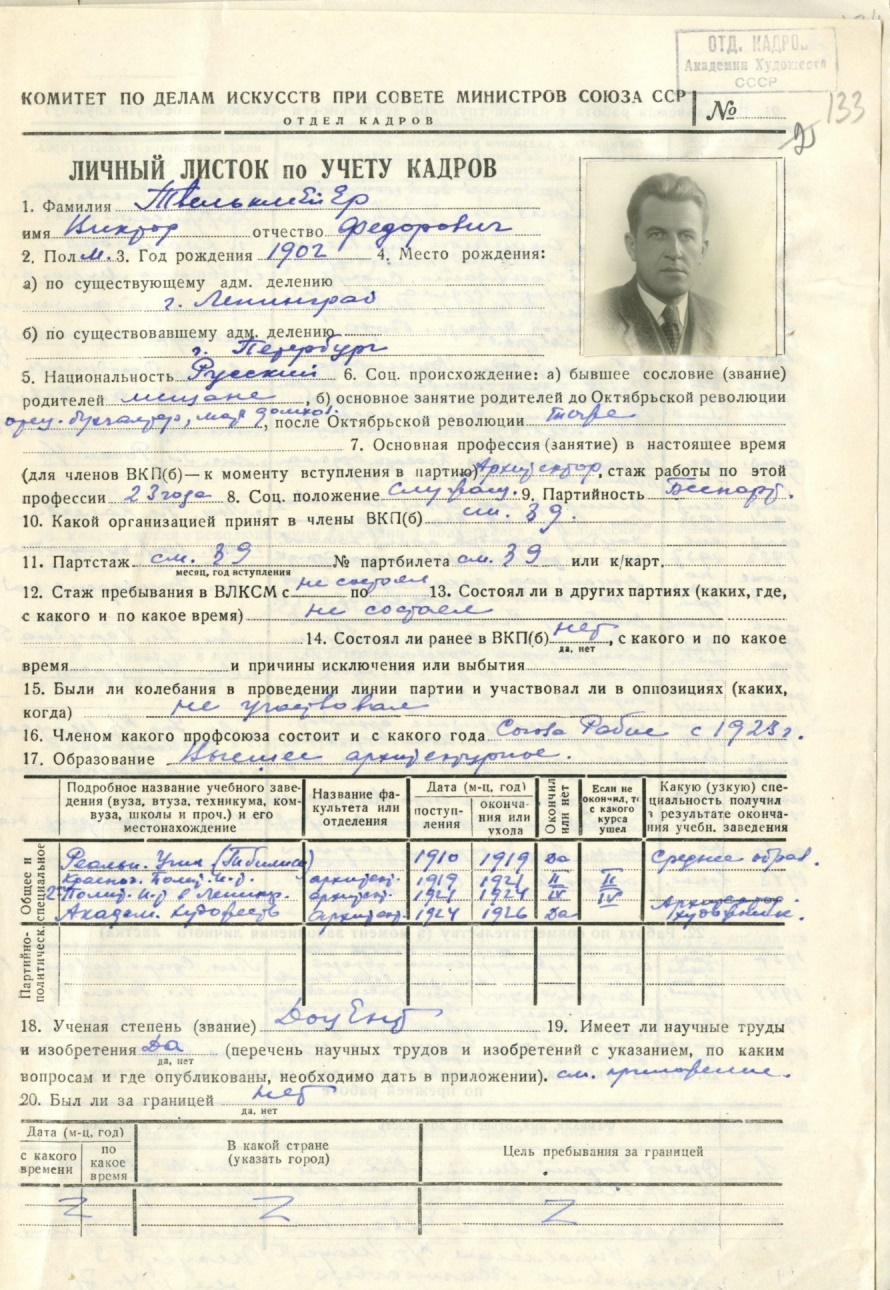 ОТД. КАДРОВ
Академии Художеств
СССР
КОМИТЕТ ПО ДЕЛАМ ИСКУССТВ ПРИ СОВЕТЕ МИНИСТРОВ СОЮЗА ССР
№ 133
ОТДЕЛ КАДРОВ
ЛИЧНЫЙ ЛИСТОК по УЧЕТУ КАДРОВ
1. Фамилия Твелькмейер
имя Виктор отчество Федорович
2. Пол м. 3. Год рождения 1902 4. Место рождения:
а) по существующему адм. делению
г. Ленинград
б) по существовавшему адм. делению
г. Петербург
5. Национальность Русский 6. Соц. происхождение: а) бывшее сословие (звание)
родителей мещане, б) основное занятие родителей до Октябрьской революции
отец-бухгалтер, мать домхоз., после Октябрьской революции тоже
7. Основная профессия (занятие) в настоящее время
(для членов ВКП(б)—к моменту вступления в партию) Архитектор, стаж работы по этой
профессии 23 года 8. Соц. положение служащ. 9. Партийность Беспарт.
10. Какой организацией принят в члены ВКП(б) см. 39.
11. Партстаж см. 39 № партбилета см. 39 или к/карт.
месяц, год вступления
12. Стаж пребывания в ВЛКСМ с не состоял по 13. Состоял ли в других партиях (каких, где,
с какого и по какое время) не состоял
14. Состоял ли ранее в ВКП(б) нет, с какого и по какое
да, нет
время и причины исключения или выбытия
15. Были ли колебания в проведении линии партии и участвовал ли в оппозициях (каких,
когда) не участвовал
16. Членом какого профсоюза состоит и с какого года Союза Рабис с 1923 г.
17. Образование Высшее архитектурное.
Подробное название учебного заведения (вуза, втуза, техникума, комвуза, школы и проч.) и его местонахождение
Название факультета или отделения
Дата (м-ц, год)
поступления
окончания или ухода
Окончил или нет
Если не окончил, то с какого курса ушел
Какую (узкую) специальность получил в результате окончания учебн. заведения
Общее и специальное
Реальн. Учил (Тбилиси) 1910 1919 Да Среднее образ.
Политех. И-т. архитект. 1919 1921 II II
2 Полит. И-т в Ленингр. архитект. 1921 1924 IV IV
Академ. Художеств Архитект. 1924 1926 Да Архитектор художник.
Партийно-политическ.
18. Ученая степень (звание) Доцент 19. Имеет ли научные труды
и изобретения Да (перечень научных трудов и изобретений с указанием, по каким
да, нет
вопросам и где опубликованы, необходимо дать в приложении). см. приложение.
20. Был ли за границей нет
да, нет
Дата (м-ц, год)
с какого времени
по какое время
В какой стране
(указать город)
Цель пребывания за границей